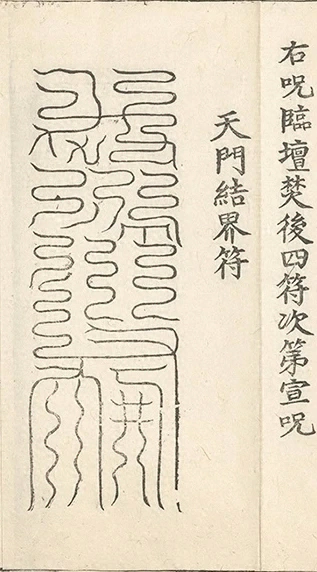 右呪臨壇焚後四符次第宣呪
天門結界符